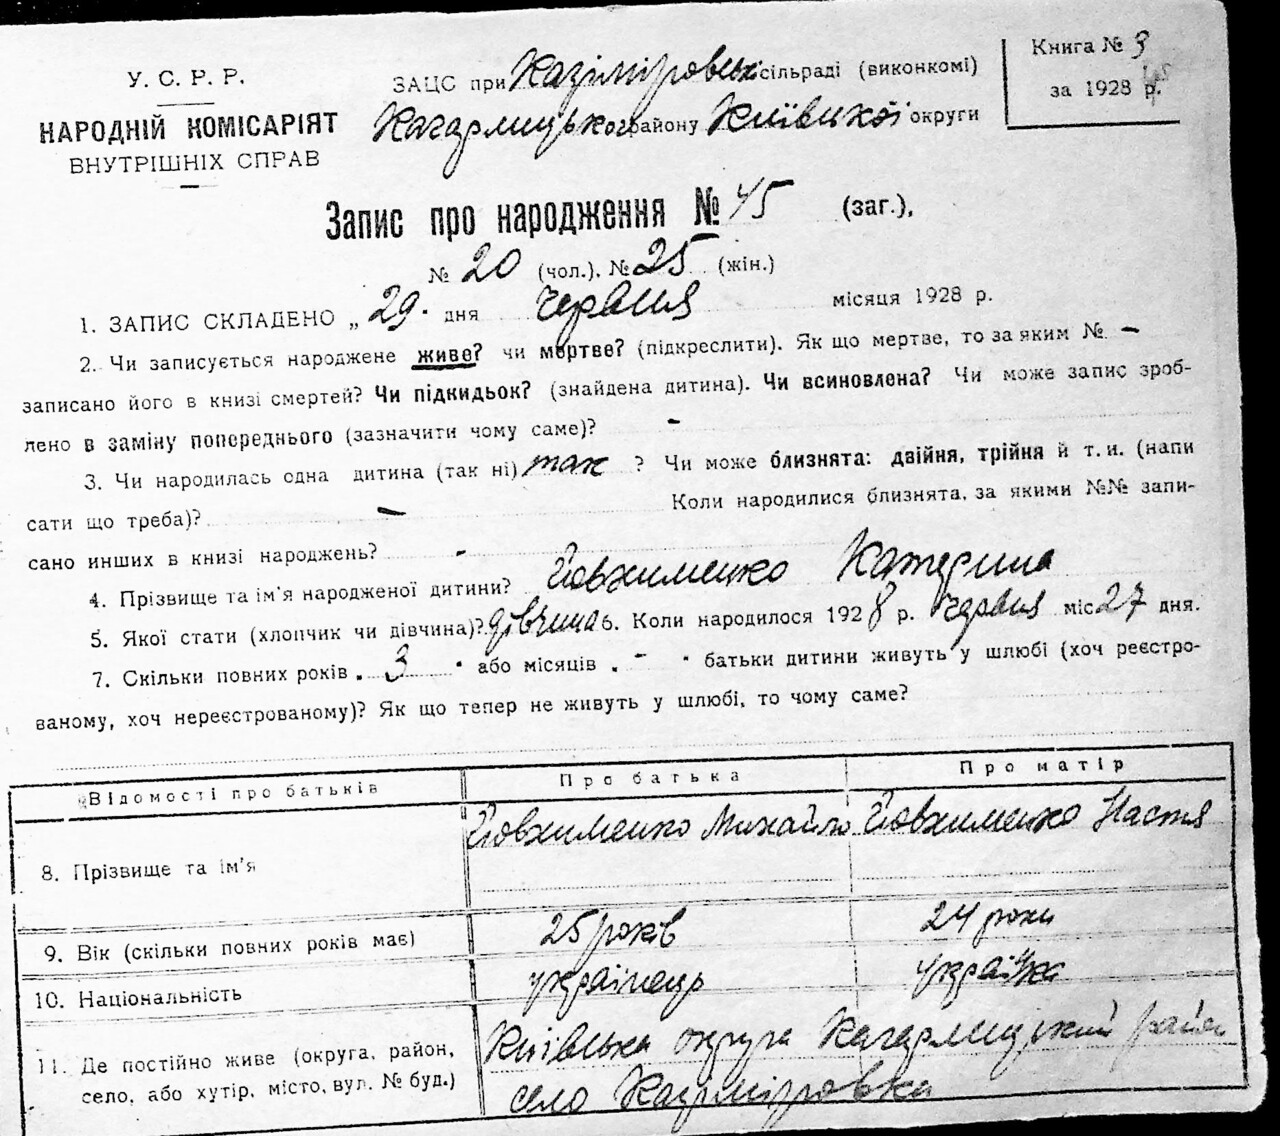 У. С. Р. Р.
НАРОДНІЙ КОМІСАРІЯТ
ВНУТРІШНІХ СПРАВ
ЗАЦС при Казіміровській сільраді (виконкомі)
Кагарлицького району Київської округи
Книга № 3
за 1928 р.
Запис про народження № 45 (заг.),
№ 20 (чол.), № 25 (жін.)
1. ЗАПИС СКЛАДЕНО „ 29 . дня Червня місяця 1928 р.
2. Чи записується народжене живе? чи мертве? (підкреслити). Як що мертве, то за яким № –
записано його в книзі смертей? Чи підкидьок? (знайдена дитина). Чи всиновлена? Чи може запис зроб-
лено в заміну попереднього (зазначити чому саме)? –
3. Чи народилась одна дитина (так ні) так ? Чи може близнята: двійня, трійня й т. и. (напи
сати що треба)? – Коли народилися близнята, за якими №№ запи-
сано инших в книзі народжень? -
4. Прізвище та ім'я народженої дитини? Йовхименко Катерина
5. Якої статі (хлопчик чи дівчина)? дівчина 6. Коли народилося 1928 р. Червня міс 27 дня.
7. Скільки повних років . 3 . або місяців . – . батьки дитини живуть у шлюбі (хоч реєстро-
ваному, хоч нереєстрованому)? Як що тепер не живуть у шлюбі, то чому саме?
Відомості про батьків Про батька Про матір
8. Прізвище та ім'я Йовхименко Михайло Йовхименко Настя
9. Вік (скільки повних років має) 25 років 24 роки
10. Національність українець українка
11. Де постійно живе (округа, район, Київська округа Кагарлицький район
село, або хутір, місто, вул. № буд.) село Казіміровка